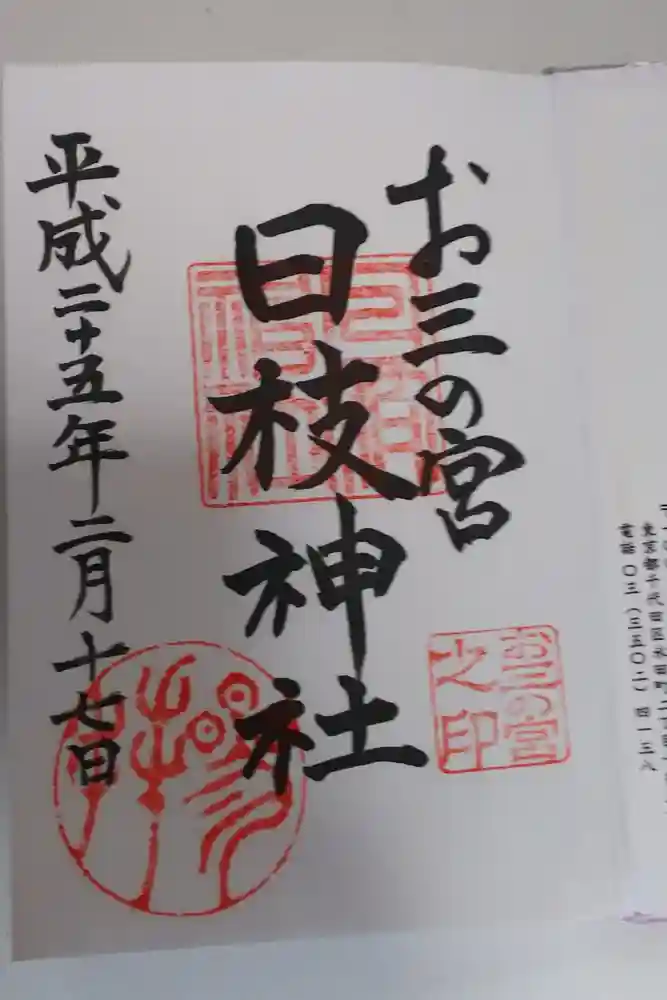 お三の宮
日枝神社
平成二十五年二月十七日
お三の宮
之印
東京都千代田区永田町二
電話〇三(三五〇二)四一三八